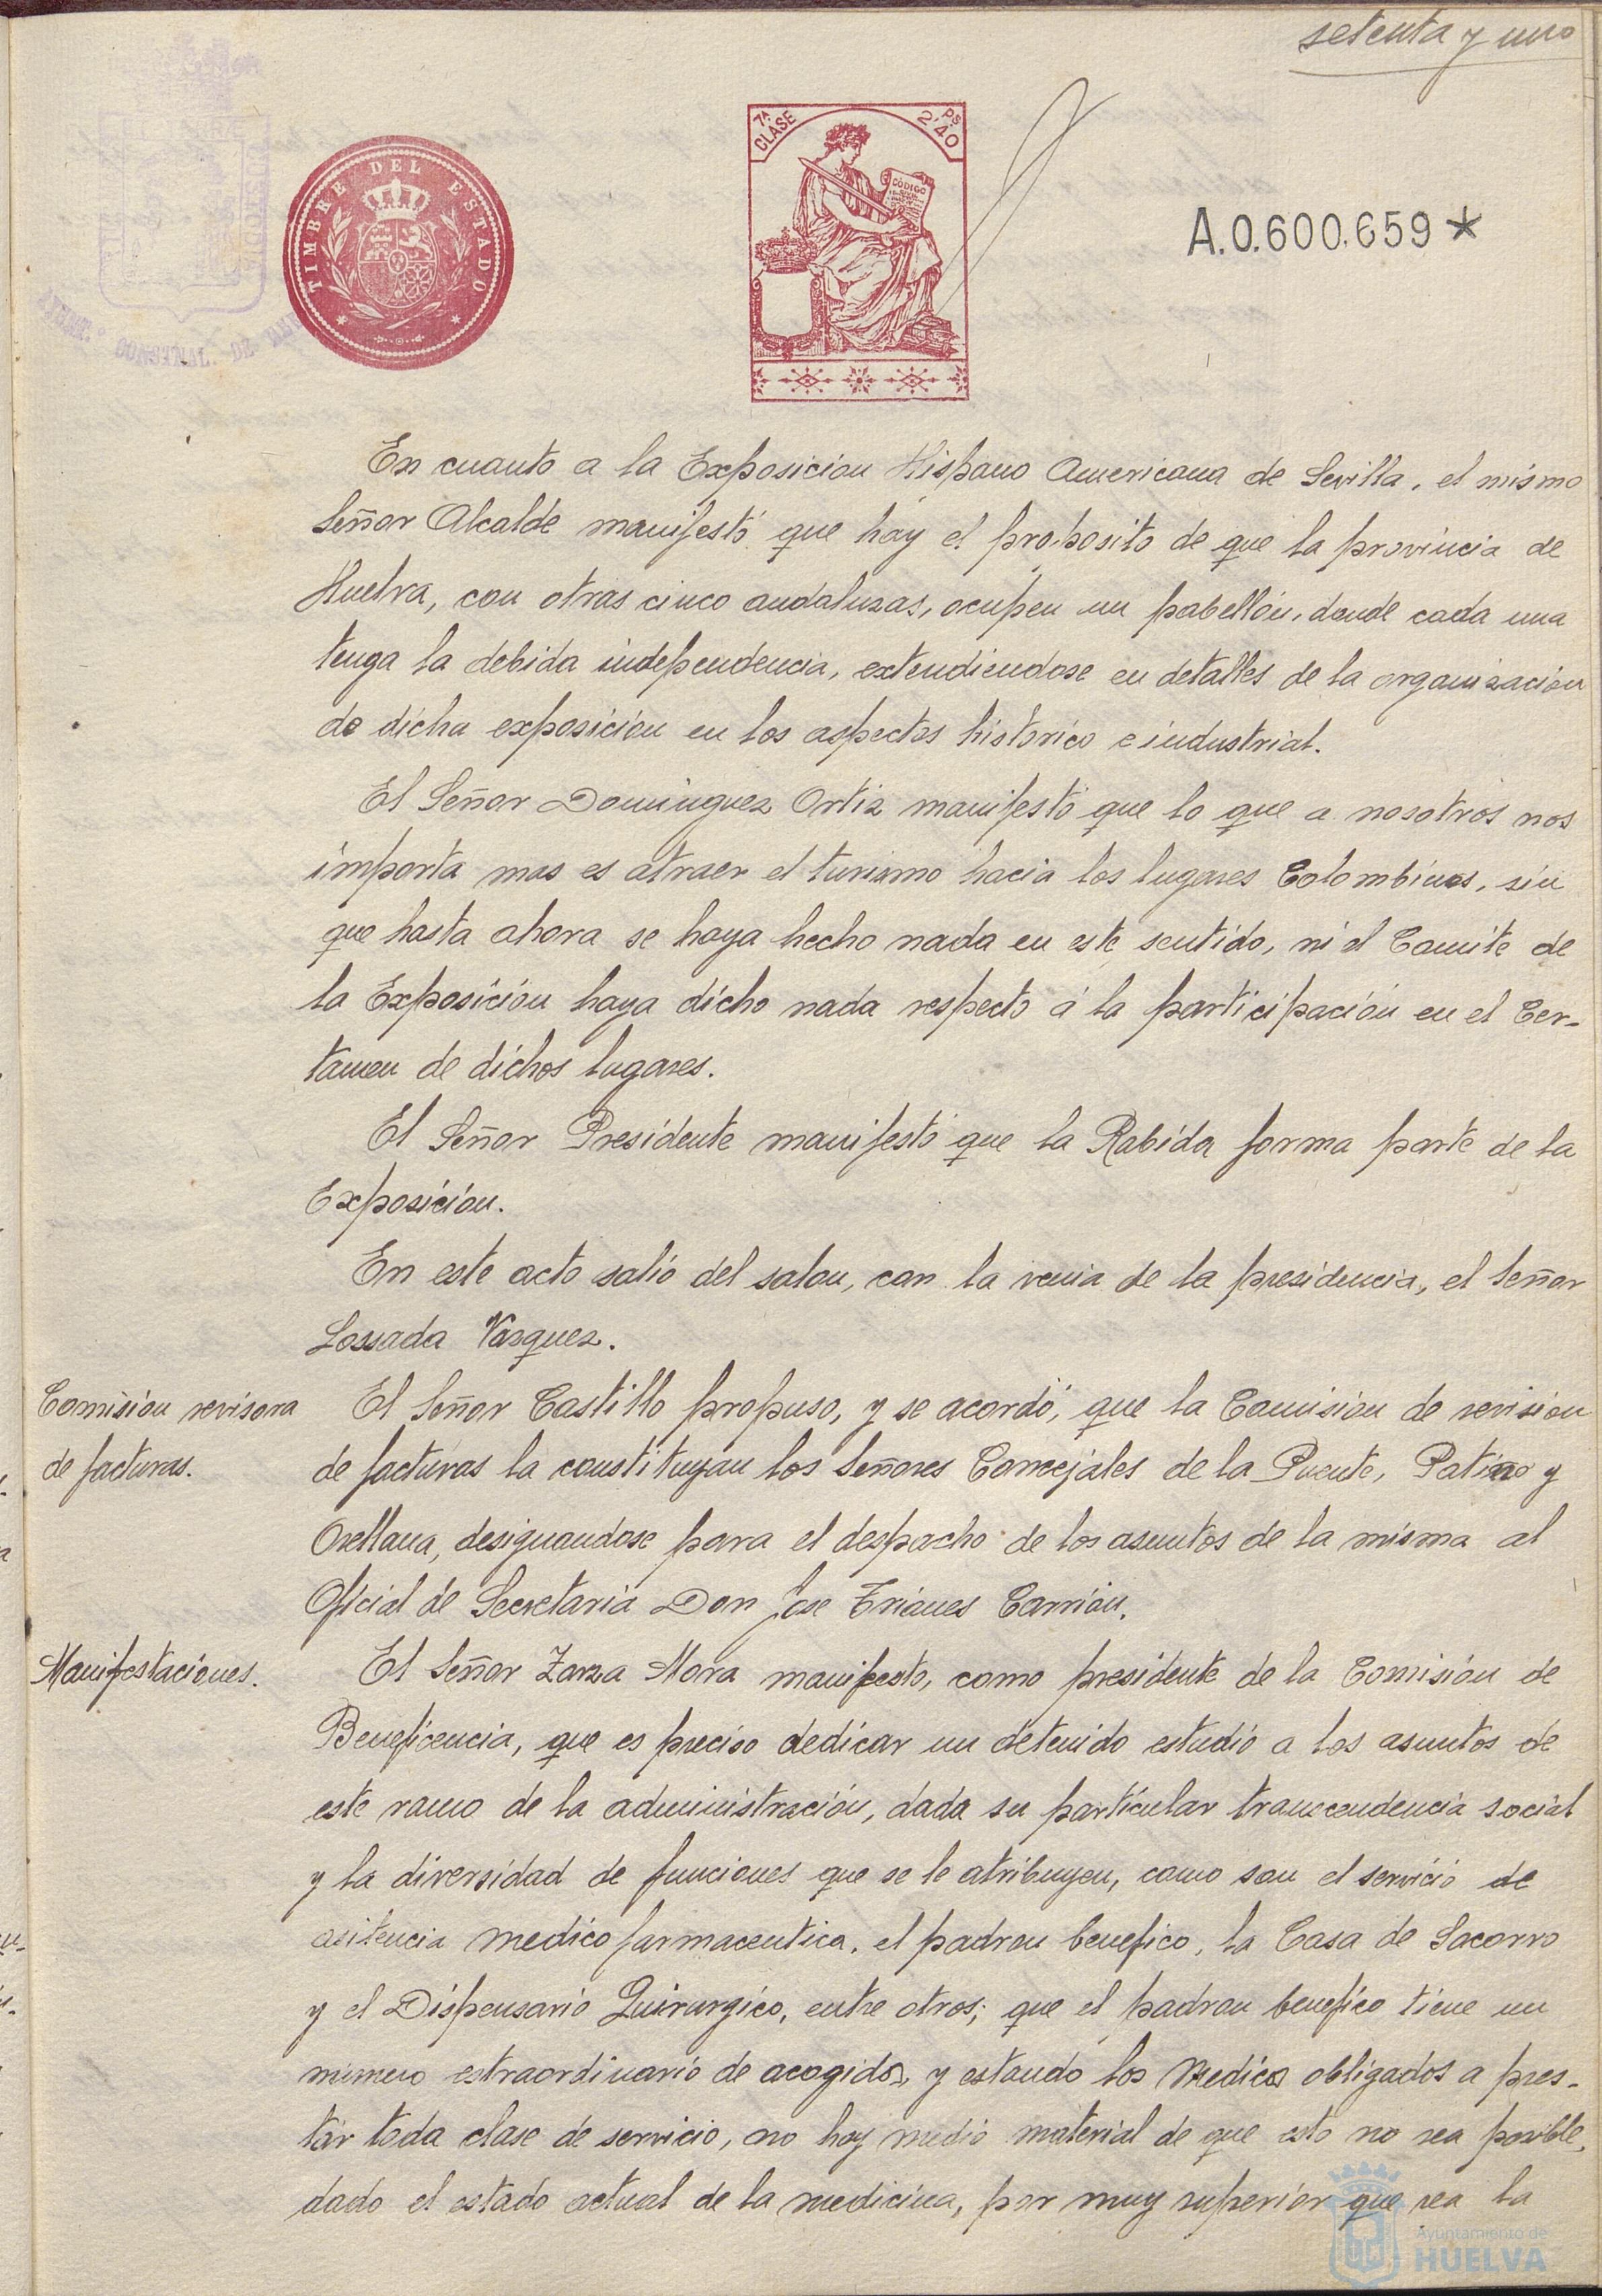 setenta y uno
TIMBRE DEL ESTADO
7ª CLASE
Ps 2'40
CÓDIGO
A.0.600.659*
CONSTNAL. DE
En cuanto a la Exposicion Hispano Americana de Sevilla, el mismo
Señor Alcalde manifestó que hay el proposito de que la provincia de
Huelva, con otras cinco andaluzas, ocupen un pabellón, donde cada una
tenga la debida independencia, extendiendose en detalles de la organizacion
de dicha exposicion en los aspectos historico e industrial.
El Señor Dominguez Ortiz manifestó que lo que a nosotros nos
importa mas es atraer el turismo hacia los lugares Colombinos, sin
que hasta ahora se haya hecho nada en este sentido, ni el Comite de
la Exposición haya dicho nada respecto á la participación en el Cer-
tamen de dichos lugares.
El Señor Presidente manifestó que la Rabida forma parte de la
Exposición.
En este acto salió del salon, con la venia de la presidencia, el Señor
Lossada Vazquez.
Comisión revisora
de facturas.
El Señor Castillo propuso, y se acordó, que la Comision de revision
de facturas la constituyan los Señores Concejales de la Puente, Patiño y
Orellana, designandose para el despacho de los asuntos de la misma al
Oficial de Secretaria Don Jose Trianes Carrión.
Manifestaciones.
El Señor Zarza Mora manifesto, como presidente de la Comisión de
Beneficencia, que es preciso dedicar un detenido estudio a los asuntos de
este ramo de la administración, dada su particular transcendencia social
y la diversidad de funciones que se le atribuyen, como son el servicio de
asitencia medico farmaceutica, el padron benefico, la Casa de Socorro
y el Dispensario Quirurgico, entre otros; que el padron benefico tiene un
numero estraordinario de acogidos, y estando los Medicos obligados a pres-
tar toda clase de servicio, no hay medio material de que esto no sea posible,
dado el estado actual de la medicina, por muy superior que sea la
Ayuntamiento de
HUELVA